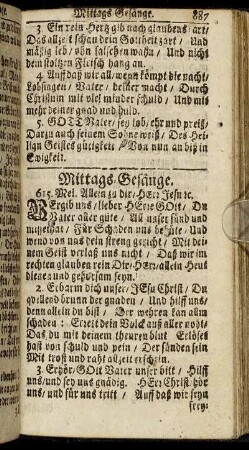 Mittags-Gesänge. 887
3 Ein rein Hertz gib nach glaubens art/
mäßig leb/ ohn falschen wahn/ Und nicht
dem stoltzen Fleisch hang an.
4. Auff daß wir all/ wenn kömpt die nacht/
Lobsingen/ Vater/ deiner macht/ Durch
Christum mit viel minder schuld/ Und mit
mehr deiner gnad und huld.
5. GOTT Vater/ sey lob/ ehr und preiß/
Darzu auch seinem Sohne weiß/ Des Hei-
ligen Geistes gütigkeit/ Von nun an biß in
Ewigkeit.
Mittags-Gesänge.
615. Mel. Allein zu dir/ HErr Jesu ꝛc.
VErgib uns/ lieber HErre GOtt/ Du
Vater aller güte/ All unser sünd und
missethat/ Für Schaden uns behüte/ Und
wend von uns dein streng gericht/ Mit dei-
nem Geist verlaß uns nicht/ Daß wir im
rechten glauben rein Dir/ HErr/ allein Heut
dienen und gehorsam seyn.
2. Erbarm dich unser/ JEsu Christ/ Du
quellend brunn der gnaden/ Und hilff uns/
denn allein du bist/ Der wehren kan allm
schaden: Errett dein Volck auß aller noht/
Das du mit deinem theuren blut Erlöset
hast von schuld und pein/ Der sünden sein
Mit trost und raht allzeit erschein.
3. Erhör/ GOtt Vater unser bitt/ Hilff
uns/ und sey uns gnädig. HErr Christ/ hör
uns/ und für uns tritt/ Auff daß wir seyn
frey-